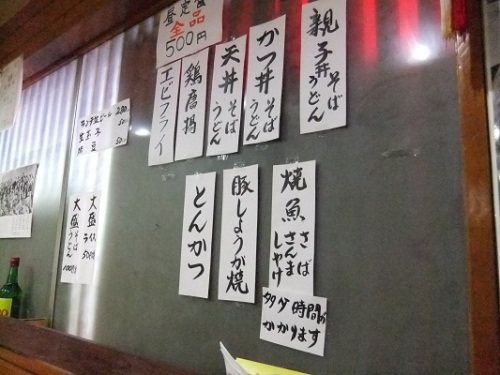 昼定食
全品
500円
親子丼そば
うどん
かつ丼そば
うどん
天丼そば
うどん
鶏唐揚
エビフライ
焼魚さば
さんま
しゃけ
豚しょうが焼
とんかつ
多少時間が
かかります
大盛ライス
50円
大盛そば
うどん
100円